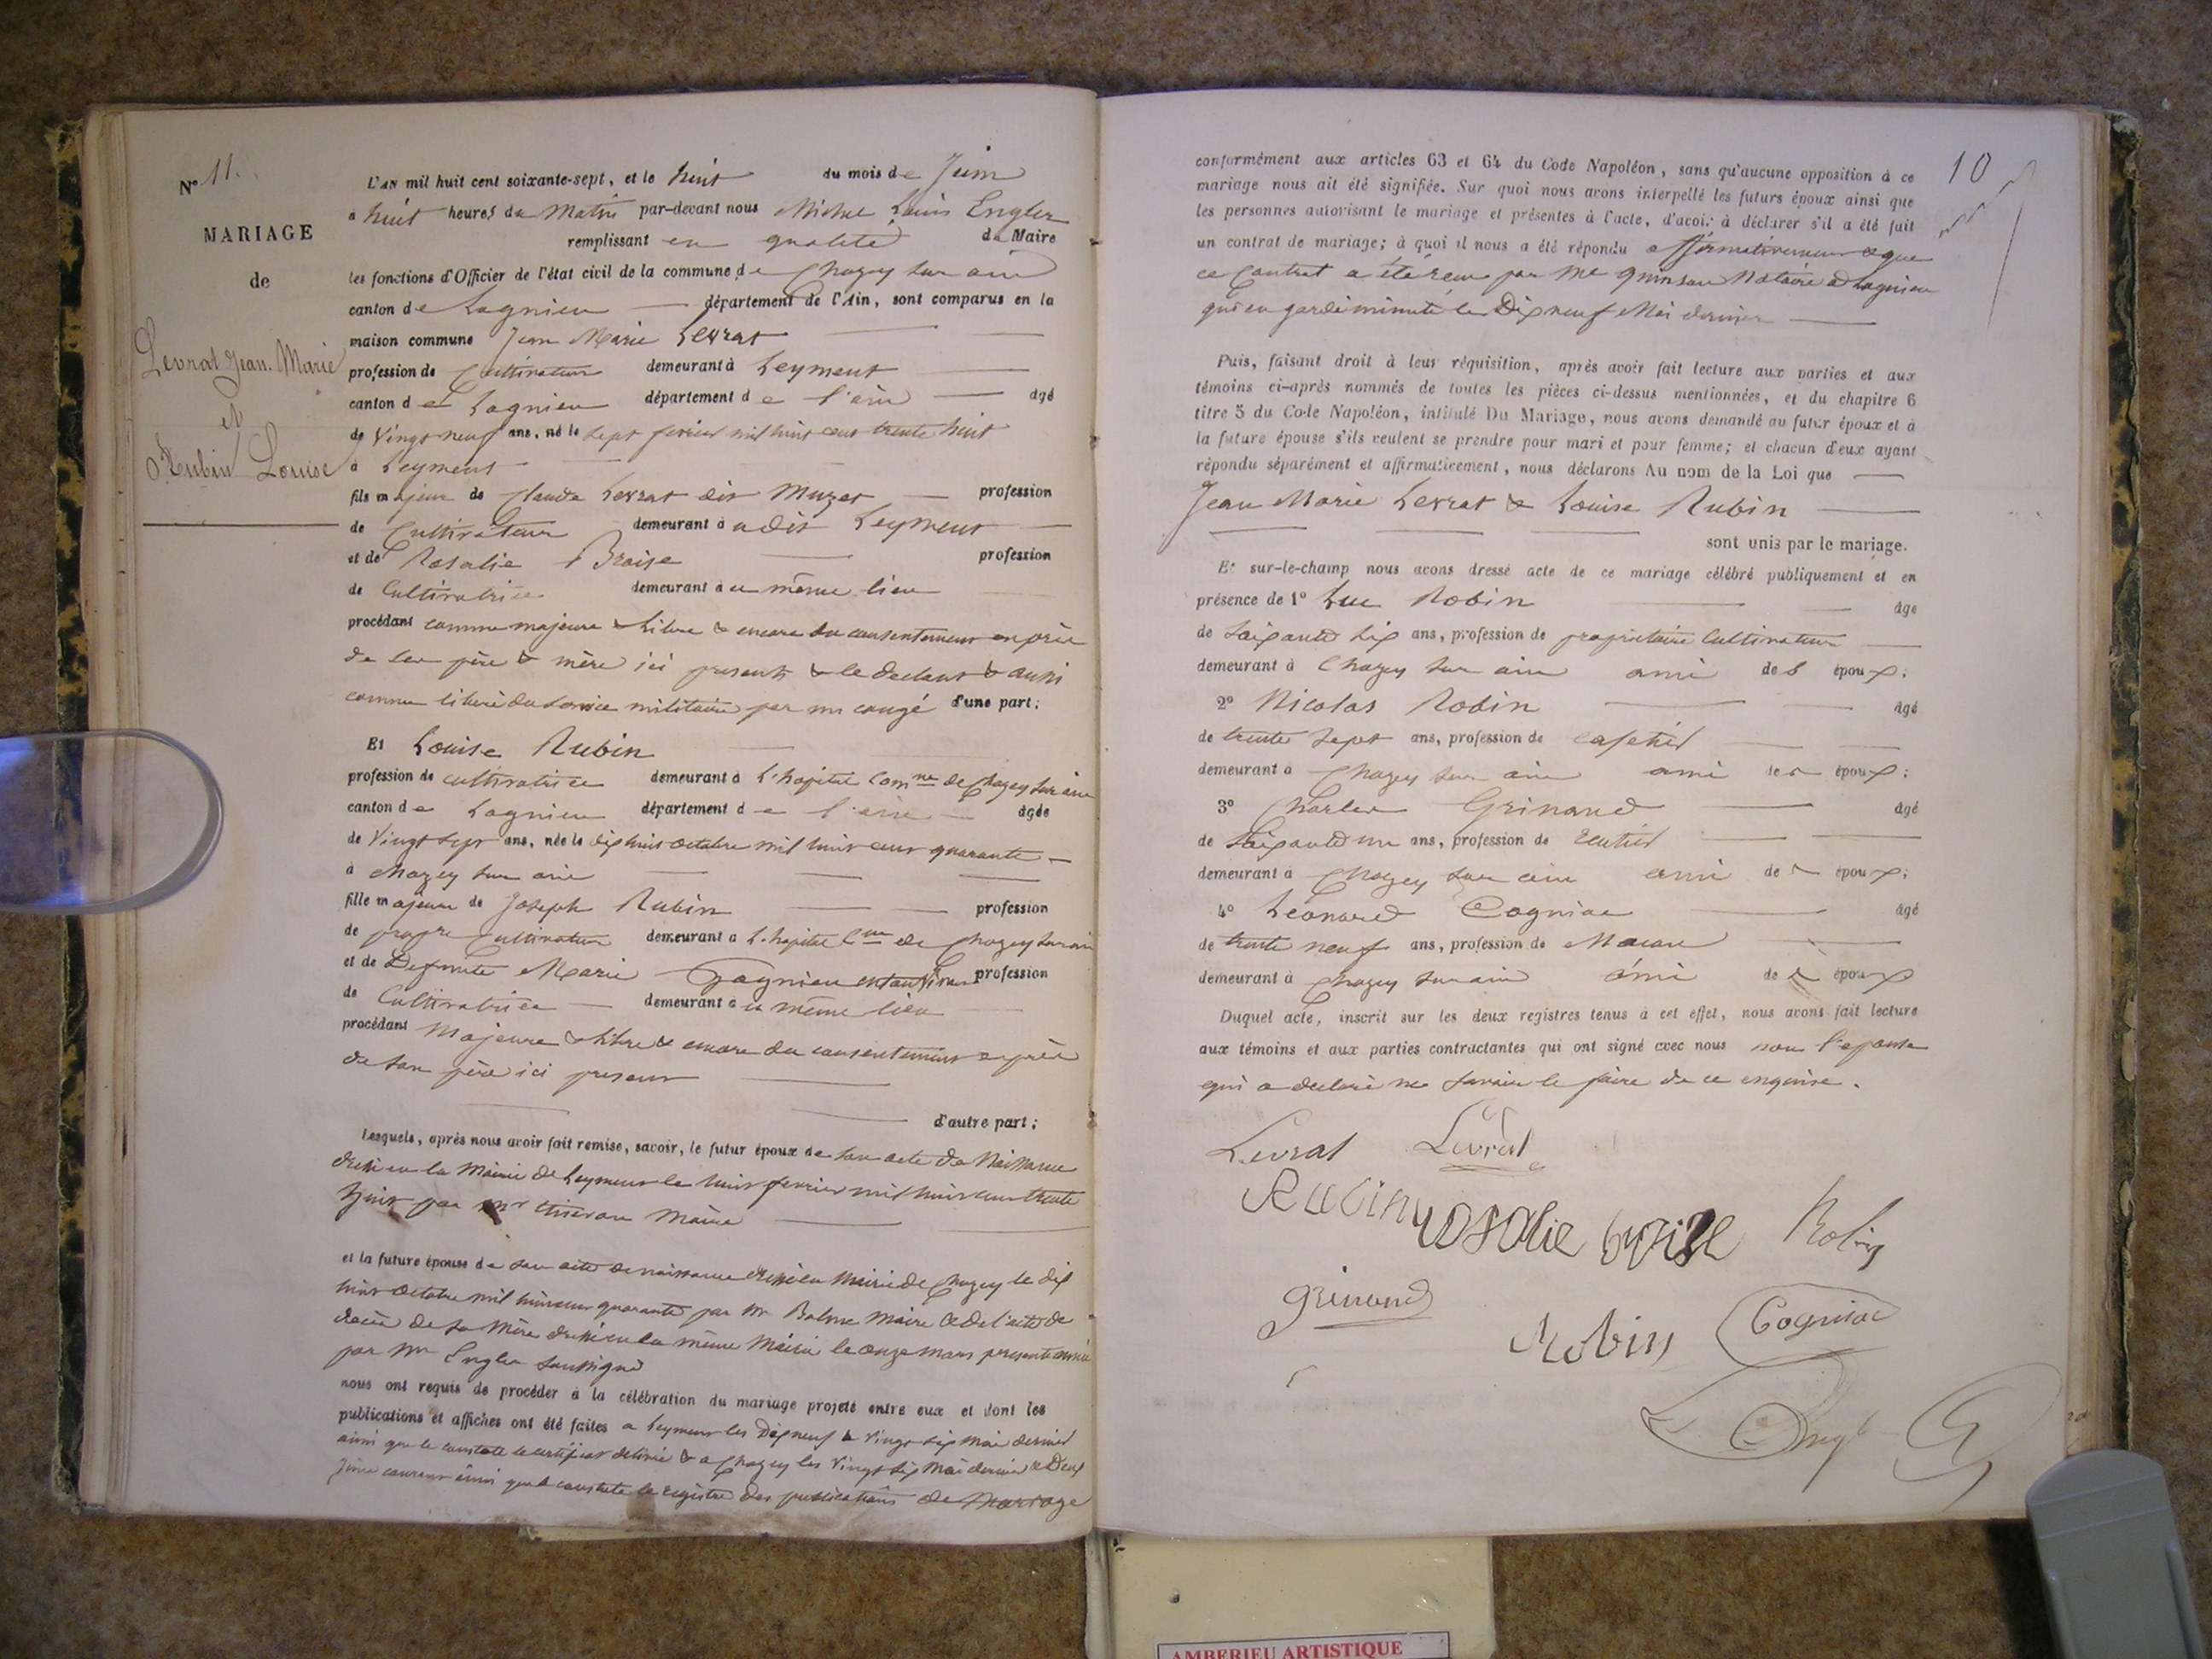 N° 11.
MARIAGE
de
Levrat Jean. Marie
et
Rubin Louise
L'AN mil huit cent soixante-sept, et le huit du mois de Juin
à huit heures du Matin par-devant nous Michel Louis Engler
remplissant en qualité de Maire
les fonctions d'Officier de l'état civil de la commune de Chazey sur ain
canton de Lagnieu département de l'Ain, sont comparus en la
maison commune Jean Marie Levrat
profession de Cultivateur demeurant à Leyment
canton de Lagnieu département de l'ain âgé
de Vingt neuf ans, né le sept fevrier mil huit cent trente huit
à Leyment
fils majeur de Claude Levrat dit Muzet profession
de Cultivateur demeurant à udit Leyment
et de Rosalie Braise profession
de Cultivatrice demeurant à u même lieu
procédant comme majeure & libre & encore du consentement exprès
de ses père & mère ici presents & le declarant & aussi
comme liberé du service militaire par un congé d'une part;
Et Louise Rubin
profession de cultivatrice demeurant à L'hopital Com.ne de Chazey sur ain
canton de Lagnieu département de l'ain âgée
de Vingt sept ans, née le dix huit octobre mil huit cent quarante
à Chazey sur ain
fille majeure de Joseph Rubin profession
de propre Cultivateur demeurant à L'hopital C.ne de Chazey sur ain
et de Defunte Marie Gagnieu en son vivant profession
de Cultivatrice demeurant à u même lieu
procédant Majeure & libre & encore du consentement exprès
de son père ici present
d'autre part;
Lesquels, après nous avoir fait remise, savoir, le futur époux de son acte de Naissance
dressé en la Mairie de Leyment le huit fevrier mil huit cent trente
huit par Mr Maire
et la future épouse de son acte de naissance dressé en Mairie de Chazey le dix
huit octobre mil huit cent quarante par Mr Balme Maire & de l'acte de
décès de sa Mère dressé en la même Mairie le onze mars presente année
par Mr Engler soussigné
nous ont requis de procéder à la célébration du mariage projeté entre eux et dont les
publications et affiches ont été faites a Leyment les Dix neuf & Vingt six mai dernier
ainsi que le constate le certificat delivré & a Chazey les Vingt six Mai dernier & Deux
Juin courant ainsi que le constate le registre des publications de Mariage
10
conformément aux articles 63 et 64 du Code Napoléon, sans qu'aucune opposition à ce
mariage nous ait été signifiée. Sur quoi nous avons interpellé les futurs époux ainsi que
les personnes autorisant le mariage et présentes à l'acte, d'avoir à déclarer s'il a été fait
un contrat de mariage; à quoi il nous a été répondu affirmativement & que
ce Contrat a été reçu par Me Quinson Notaire à Lagnieu
qui en garde minute le Dix neuf Mai dernier
Puis, faisant droit à leur réquisition, après avoir fait lecture aux parties et aux
témoins ci-après nommés de toutes les pièces ci-dessus mentionnées, et du chapitre 6
titre 5 du Code Napoléon, intitulé Du Mariage, nous avons demandé au futur époux et à
la future épouse s'ils veulent se prendre pour mari et pour femme; et chacun d'eux ayant
répondu séparément et affirmativement, nous déclarons Au nom de la Loi que
Jean Marie Levrat & Louise Rubin
sont unis par le mariage.
Et sur-le-champ nous avons dressé acte de ce mariage célébré publiquement et en
présence de 1° Luc Robin âgé
de Soixante six ans, profession de proprietaire Cultivateur
demeurant à Chazey sur ain ami des époux;
2° Nicolas Robin âgé
de trente sept ans, profession de cafetier
demeurant à Chazey sur ain ami des époux;
3° Charles Grinand âgé
de Soixante un ans, profession de Rentier
demeurant à Chazey sur ain ami des époux;
4° Léonard Cogniac âgé
de trente neuf ans, profession de Macon
demeurant à Chazey sur ain ami des époux
Duquel acte, inscrit sur les deux registres tenus à cet effet, nous avons fait lecture
aux témoins et aux parties contractantes qui ont signé avec nous non l'epouse
qui a declaré ne savoir le faire de ce enquise.
Levrat Levrat
Rubin rosalie braise Robin
Grinand Robin Cogniac
Engl
AMBERIEU ARTISTIQUE